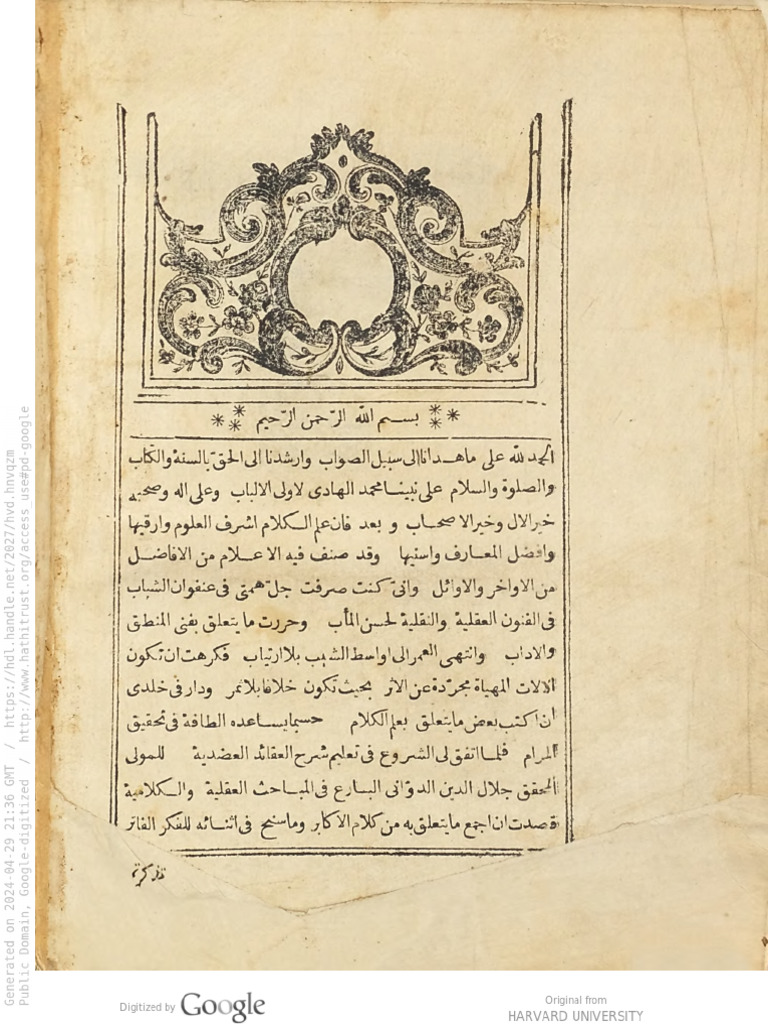 بسم الله الرّحمن الرّحيم
الحمد لله على ما هدانا الى سبيل الصواب وارشدنا الى الحق بالسنة والكتاب
والصلوة والسلام على نبينا محمد الهادى لاولى الالباب وعلى اله وصحبه
خير الال وخير الاصحاب و بعد فان علم الكلام اشرف العلوم وارقيها
وافضل المعارف واسنيها وقد صنف فيه الاعلام من الافاضل
من الاواخر والاوائل وانى كنت صرفت جل همتى فى عنفوان الشباب
فى الفنون العقلية والنقلية لحسن المأب وحررت ما يتعلق بفنى المنطق
والاداب وانتهى العمر الى اواسط الشيب بلا ارتياب فكرهت ان تكون
الالات المهياة مجردة عن الاثر بحيث تكون خلافا بلا ثمر ودار فى خلدى
ان اكتب بعض ما يتعلق بعلم الكلام حسبما يساعده الطاقة فى تحقيق
المرام فلما اتفق لى الشروع فى تعليم شرح العقائد العضدية للمولى
المحقق جلال الدين الدوّانى البارع فى المباحث العقلية والكلامية
قصدت ان اجمع ما يتعلق به من كلام الاكابر وما سنح فى اثنائه للفكر الفاتر
تذكرة
Generated on 2024-04-29 21:36 GMT / https://hdl.handle.net/2027/hvd.hnvqzm
Public Domain, Google-digitized / http://www.hathitrust.org/access_use#pd-google
Digitized by Google
Original from
HARVARD UNIVERSITY